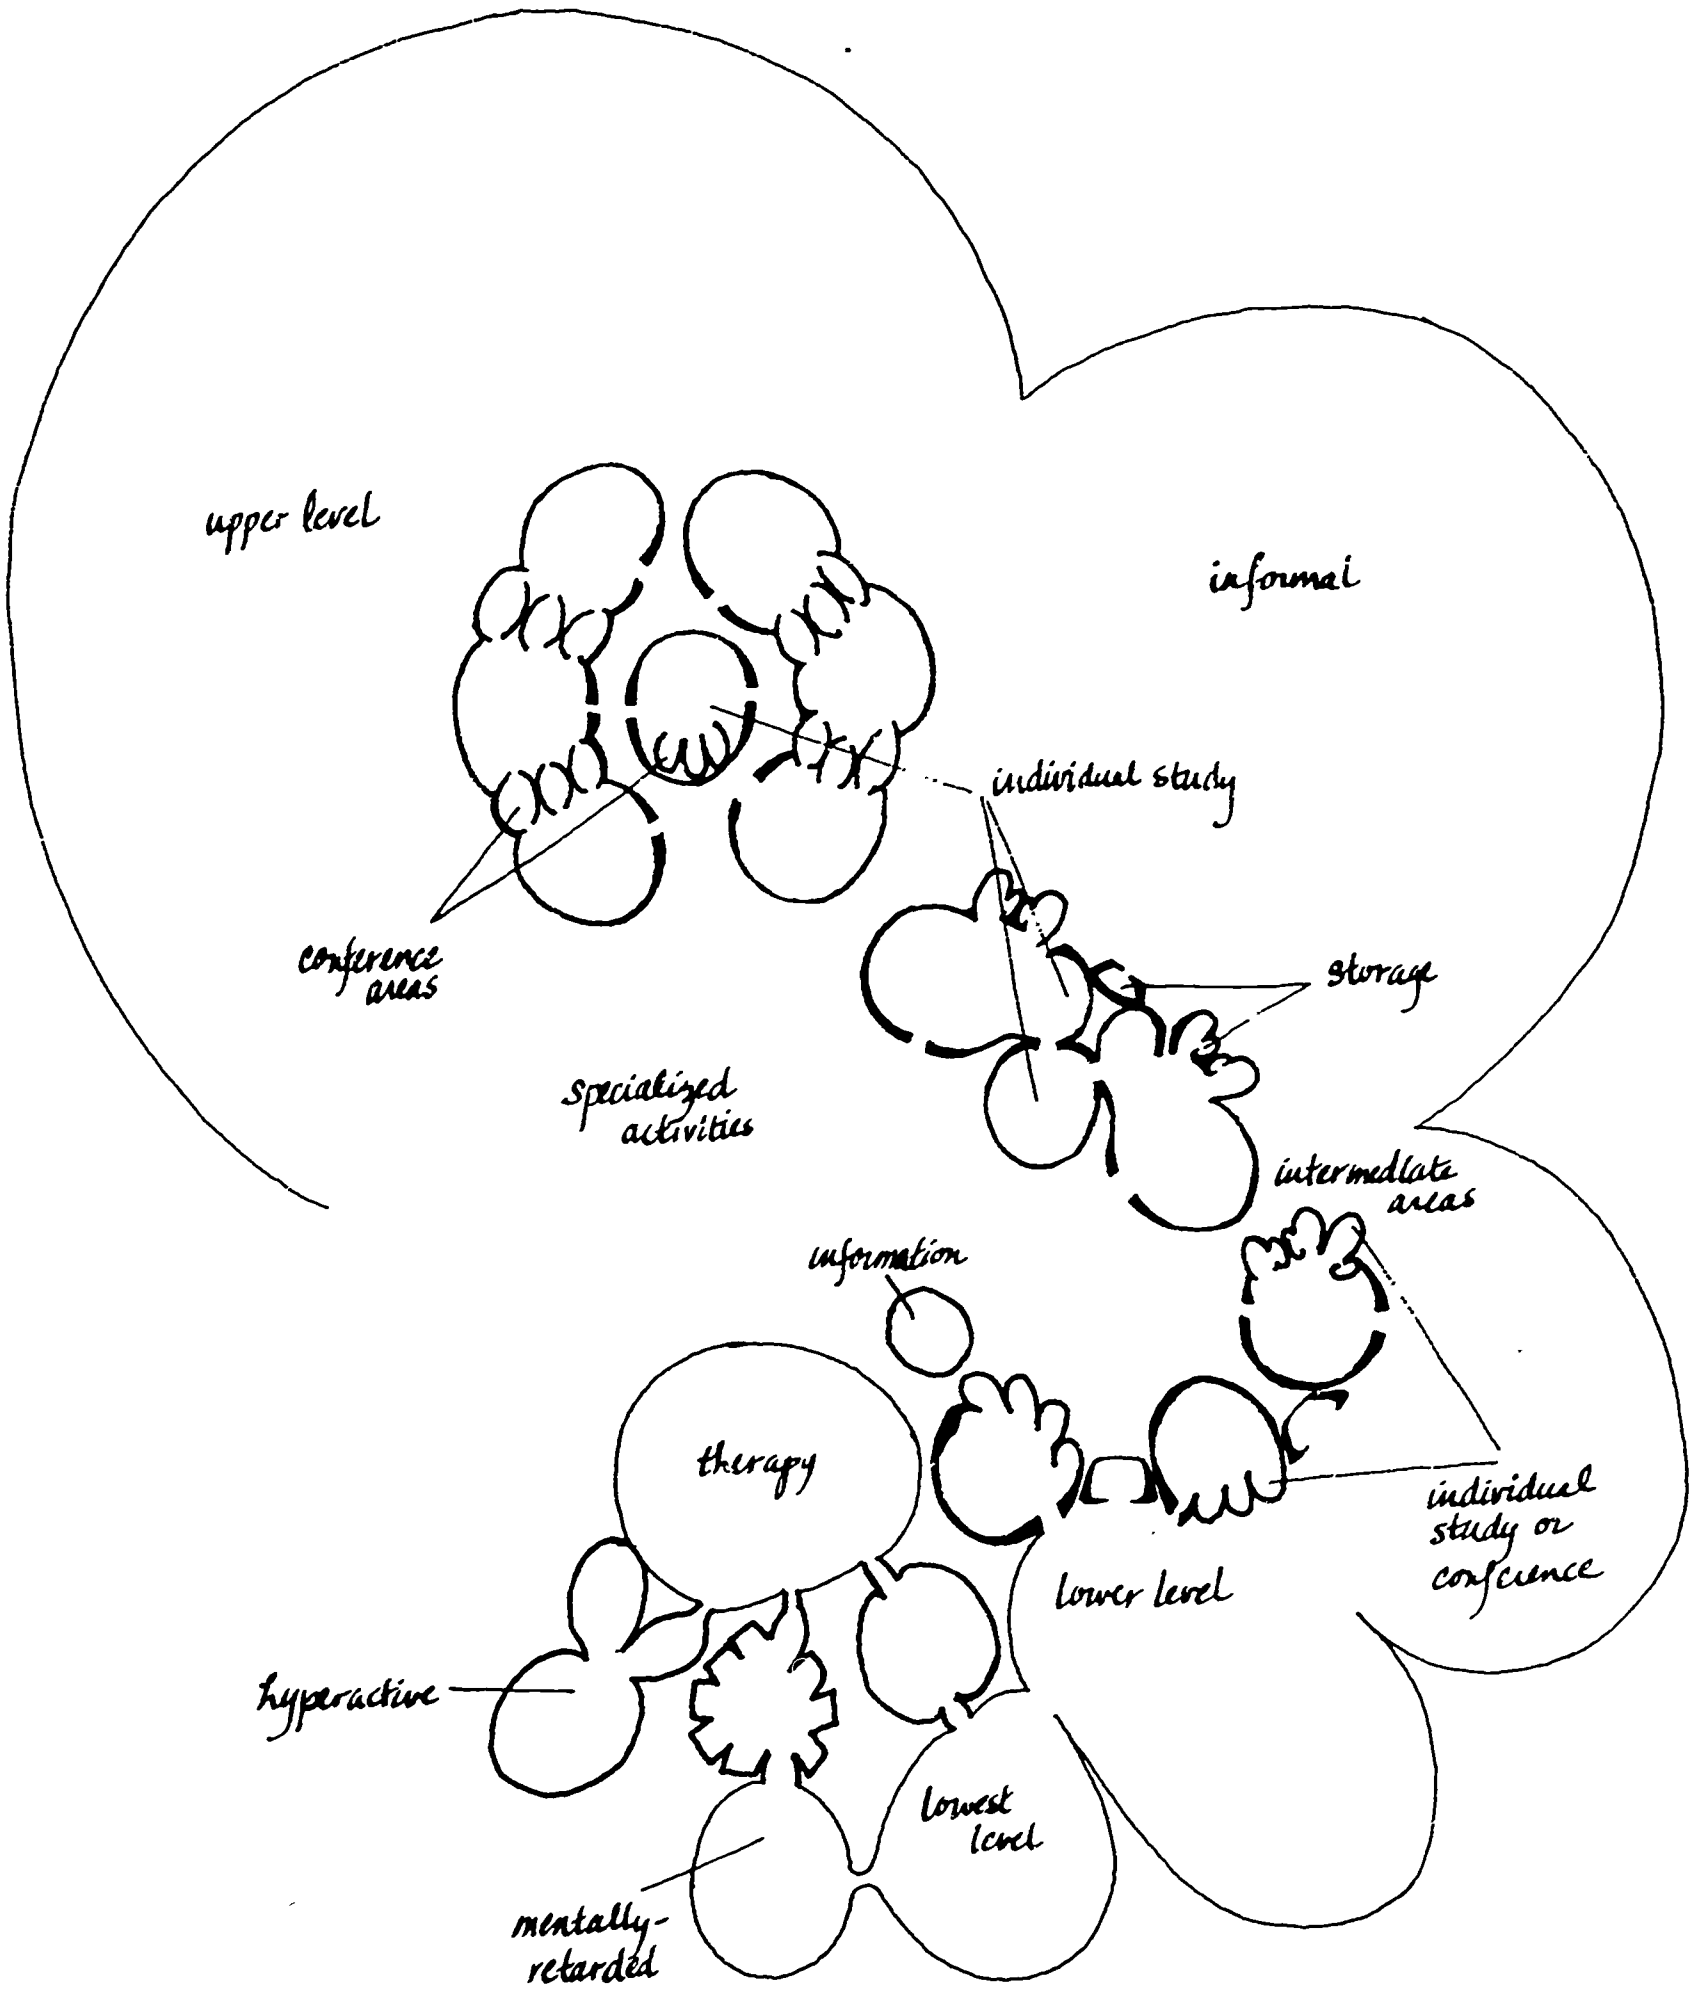 upper level
informal
individual study
conference
areas
storage
specialized
activities
intermediate
areas
information
therapy
individual
study or
conference
lower level
hyperactive
lowest
level
mentally-
retarded